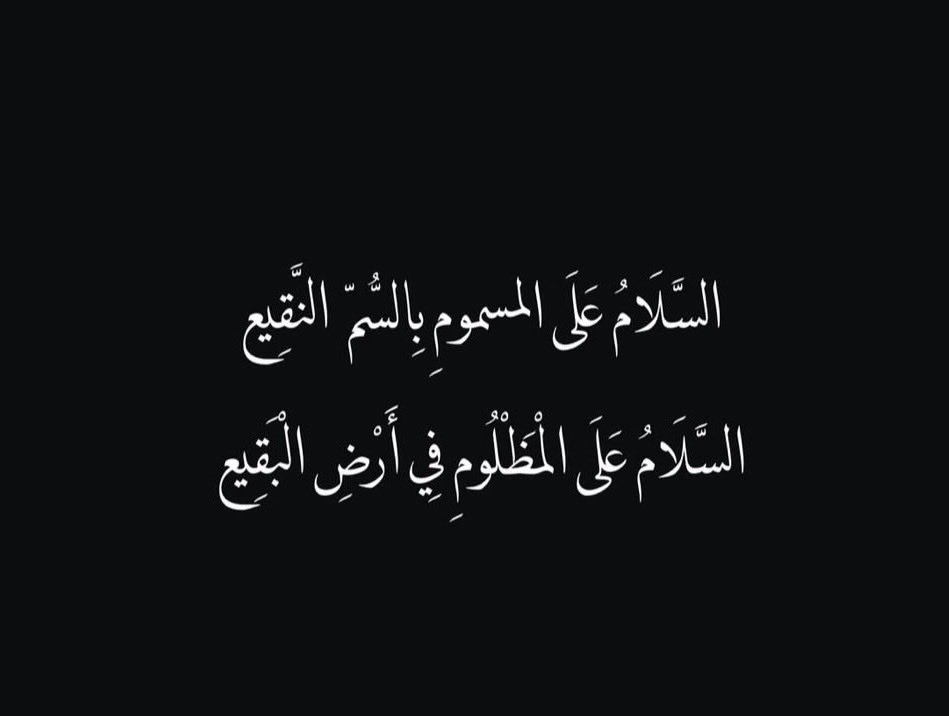 السَّلَامُ عَلَى المسمومِ بِالسُّمّ النَّقِيع
السَّلَامُ عَلَى الْمَظْلُومِ فِي أَرْضِ الْبَقِيع